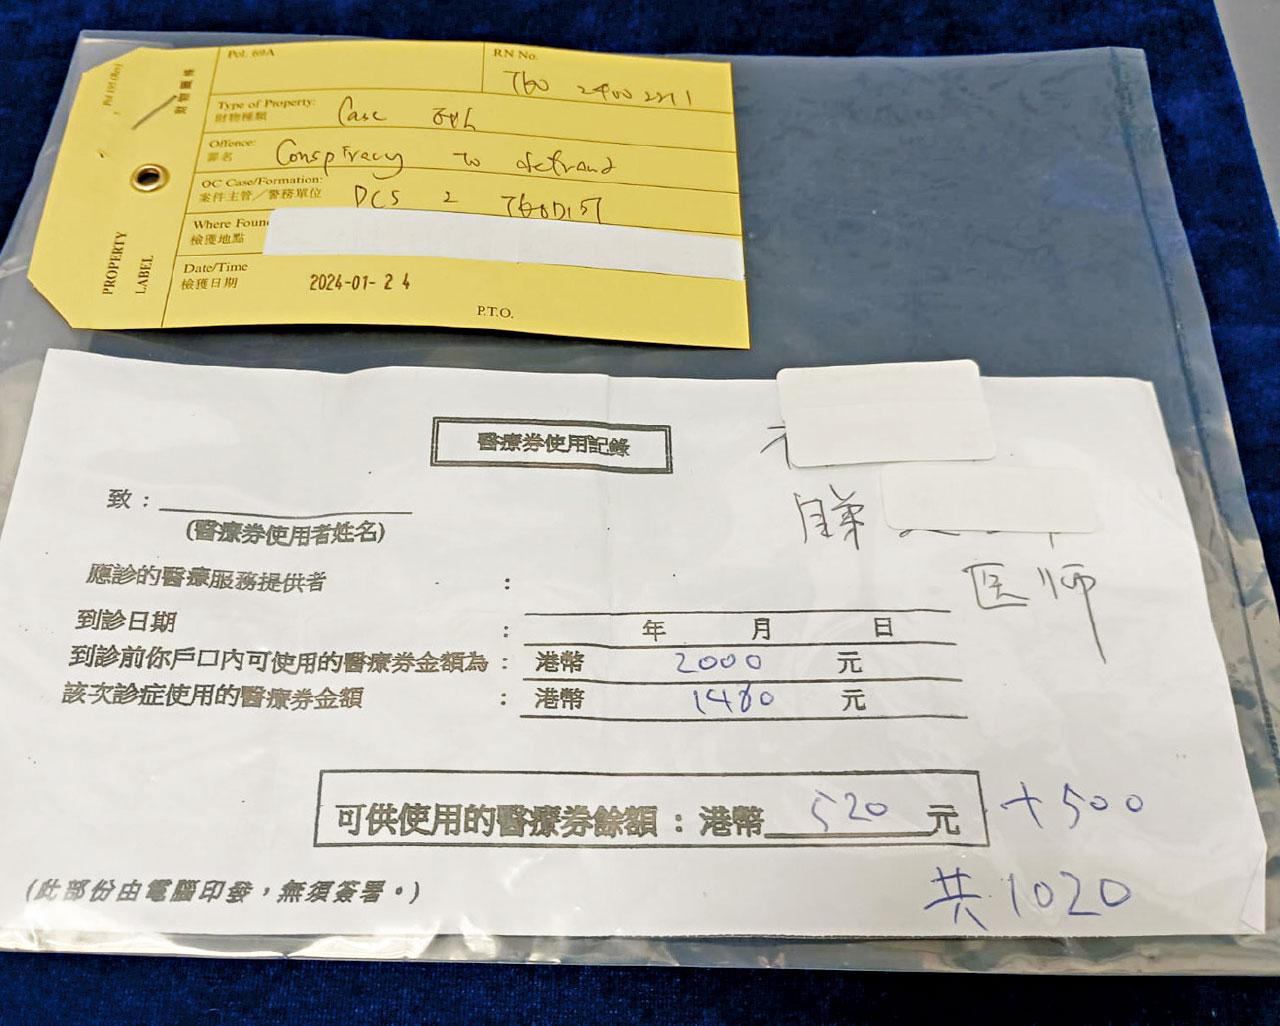 Pol. 69A
RN No.
TKO 24002211
Type of Property:
財物種類
Case exh
Offence:
罪名
Conspiracy to defraud
OC Case/Formation:
案件主管／警務單位
DCS 2 TKODIST
Where Foun
檢獲地點
Date/Time
檢獲日期
2024-01-24
P.T.O.
PROPERTY
LABEL
醫療券使用記錄
致：
(醫療券使用者姓名)
医师
應診的醫療服務提供者 :
到診日期 : 年 月 日
到診前你戶口內可使用的醫療券金額為 : 港幣 2000 元
該次診症使用的醫療券金額 : 港幣 1480 元
可供使用的醫療券餘額：港幣 520 元 +500
共1020
(此部份由電腦印發，無須簽署。)